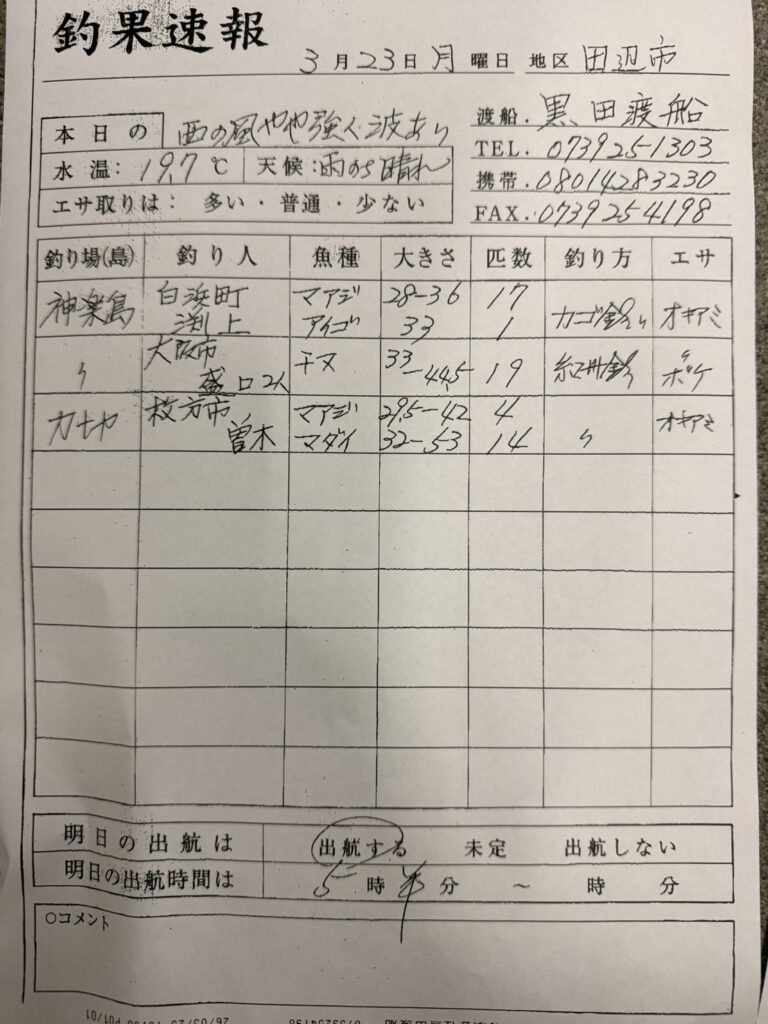 釣果速報
3月23日月曜日 地区 田辺市
本日の 西の風やや強く波あり
水温: 19.7℃ 天候:雨のち晴れ
エサ取りは: 多い・普通・少ない
渡船. 黒田渡船
TEL. 0739251303
携帯. 08014283230
FAX. 0739254198
釣り場(島) 釣り人 魚種 大きさ 匹数 釣り方 エサ
神楽島 白浜町 マアジ 28-36 17
渕上 アイゴ 33 1 カゴ釣り オキアミ
〃 大阪市 チヌ 33
盛口2人 -44.5 19 紀州釣 ボケ
カセヤ 枚方市 マアジ 29.5-42 4 オキアミ
曽木 マダイ 32-53 14 〃
明日の出航は 出航する 未定 出航しない
明日の出航時間は 5時半分 ~ 時 分
○コメント